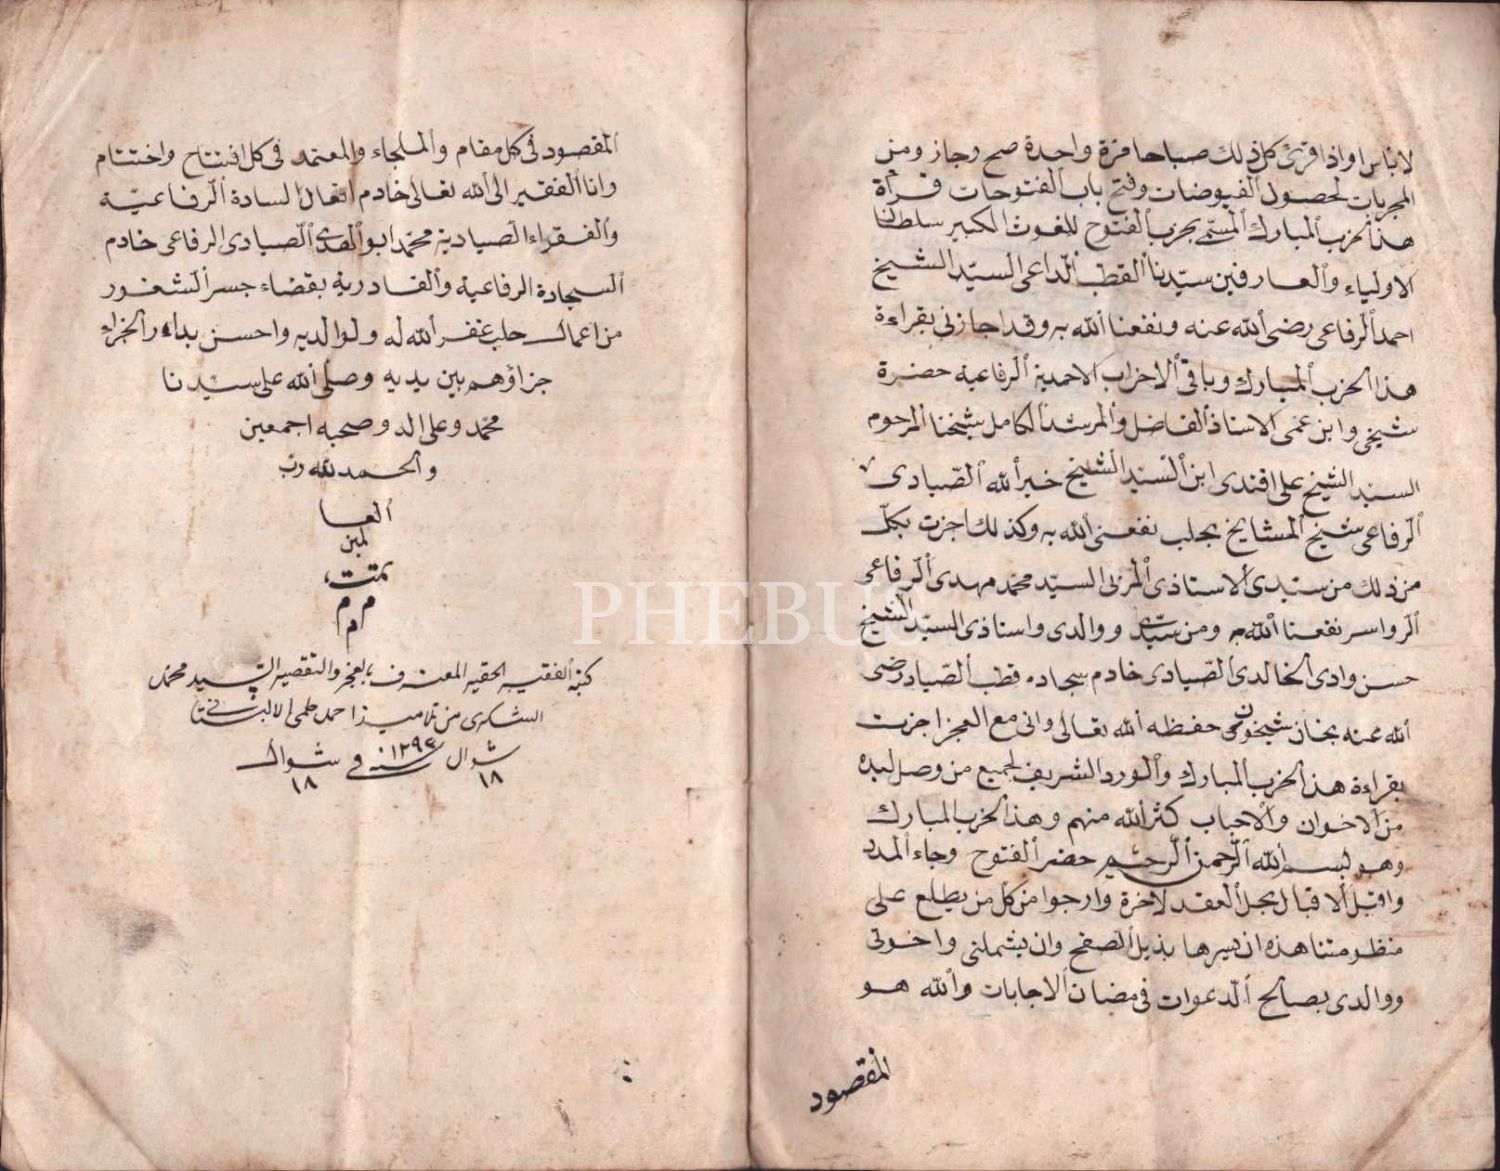 لاباس او اذا قرئ كل ذلك صباحا مرة واحدة صح وجاز ومن
المجربات لحصول الفيوضات وفتح باب الفتوحات قرأة
هذا الحزب المبارك المسمى بحزب الفتوح للغوث الكبير سلطان
الاولياء والعارفين سيدنا القطب الداعى السيد الشيخ
احمد الرفاعى رضى الله عنه ونفعنا الله به وقد اجازنى بقراءة
هذا الحزب المبارك وباقى الاحزاب الاحمدية الرفاعية حضرة
شيخى وابن عمى الاستاذ الفاضل والمرشد الكامل شيخنا المرحوم
السيد الشيخ على افندى ابن السيد الشيخ خير الله الصيادى
الرفاعى شيخ المشايخ بحلب نفعنى الله به وكذلك اجزت بكل
من ذلك من سيدى الاستاذى المربى السيد محمد مهدى الرفاعى
الرواسر نفعنا الله به ومن سيدى ووالدى واستاذى السيد الشيخ
حسن وادى الخالدى الصيادى خادم سجاده قطب الصياد رضى
الله عنه بخان شيخون حفظه الله تعالى وانى مع العجز اجزت
بقراءة هذا الحزب المبارك والورد الشريف لجميع من وصل ليده
من الاخوان والاحباب كثر الله منهم وهذا الحزب المبارك
وهو بسم الله الرحمن الرحيم حضر الفتوح وجاء المدد
واقبل الاقبال بحل العقد لاخرة وارجوا من كل من يطلع على
منظومتنا هذه ان يسرها بذيل الصفح وان يشملنى واخوتى
ووالدى بصالح الدعوات فى مضان الاجابات والله هو
المقصود
المقصود فى كل مقام والملجاء والمعتمد فى كل افتتاح واختتام
وانا الفقير الى الله تعالى خادم نعال السادة الرفاعية
والفقراء الصيادية محمد ابو الهدى الصيادى الرفاعى خادم
السجادة الرفاعية والقادرية بقضاء جسر الشغور
من اعمال حلب غفر الله له ولوالديه واحسن بدار الجزاء
جزاؤهم بين يديه وصلى الله على سيدنا
محمد وعلى اله وصحبه اجمعين
والحمد لله رب
العا
لمين
تمت
م م
م
كتبه الفقير الحقير المعترف بالعجز والتقصير السيد محمد
الشكرى من تلاميذ احمد حلمى
شوال ١٢٩٣سنه فى شوال
١٨ ١٨
PHEBUS